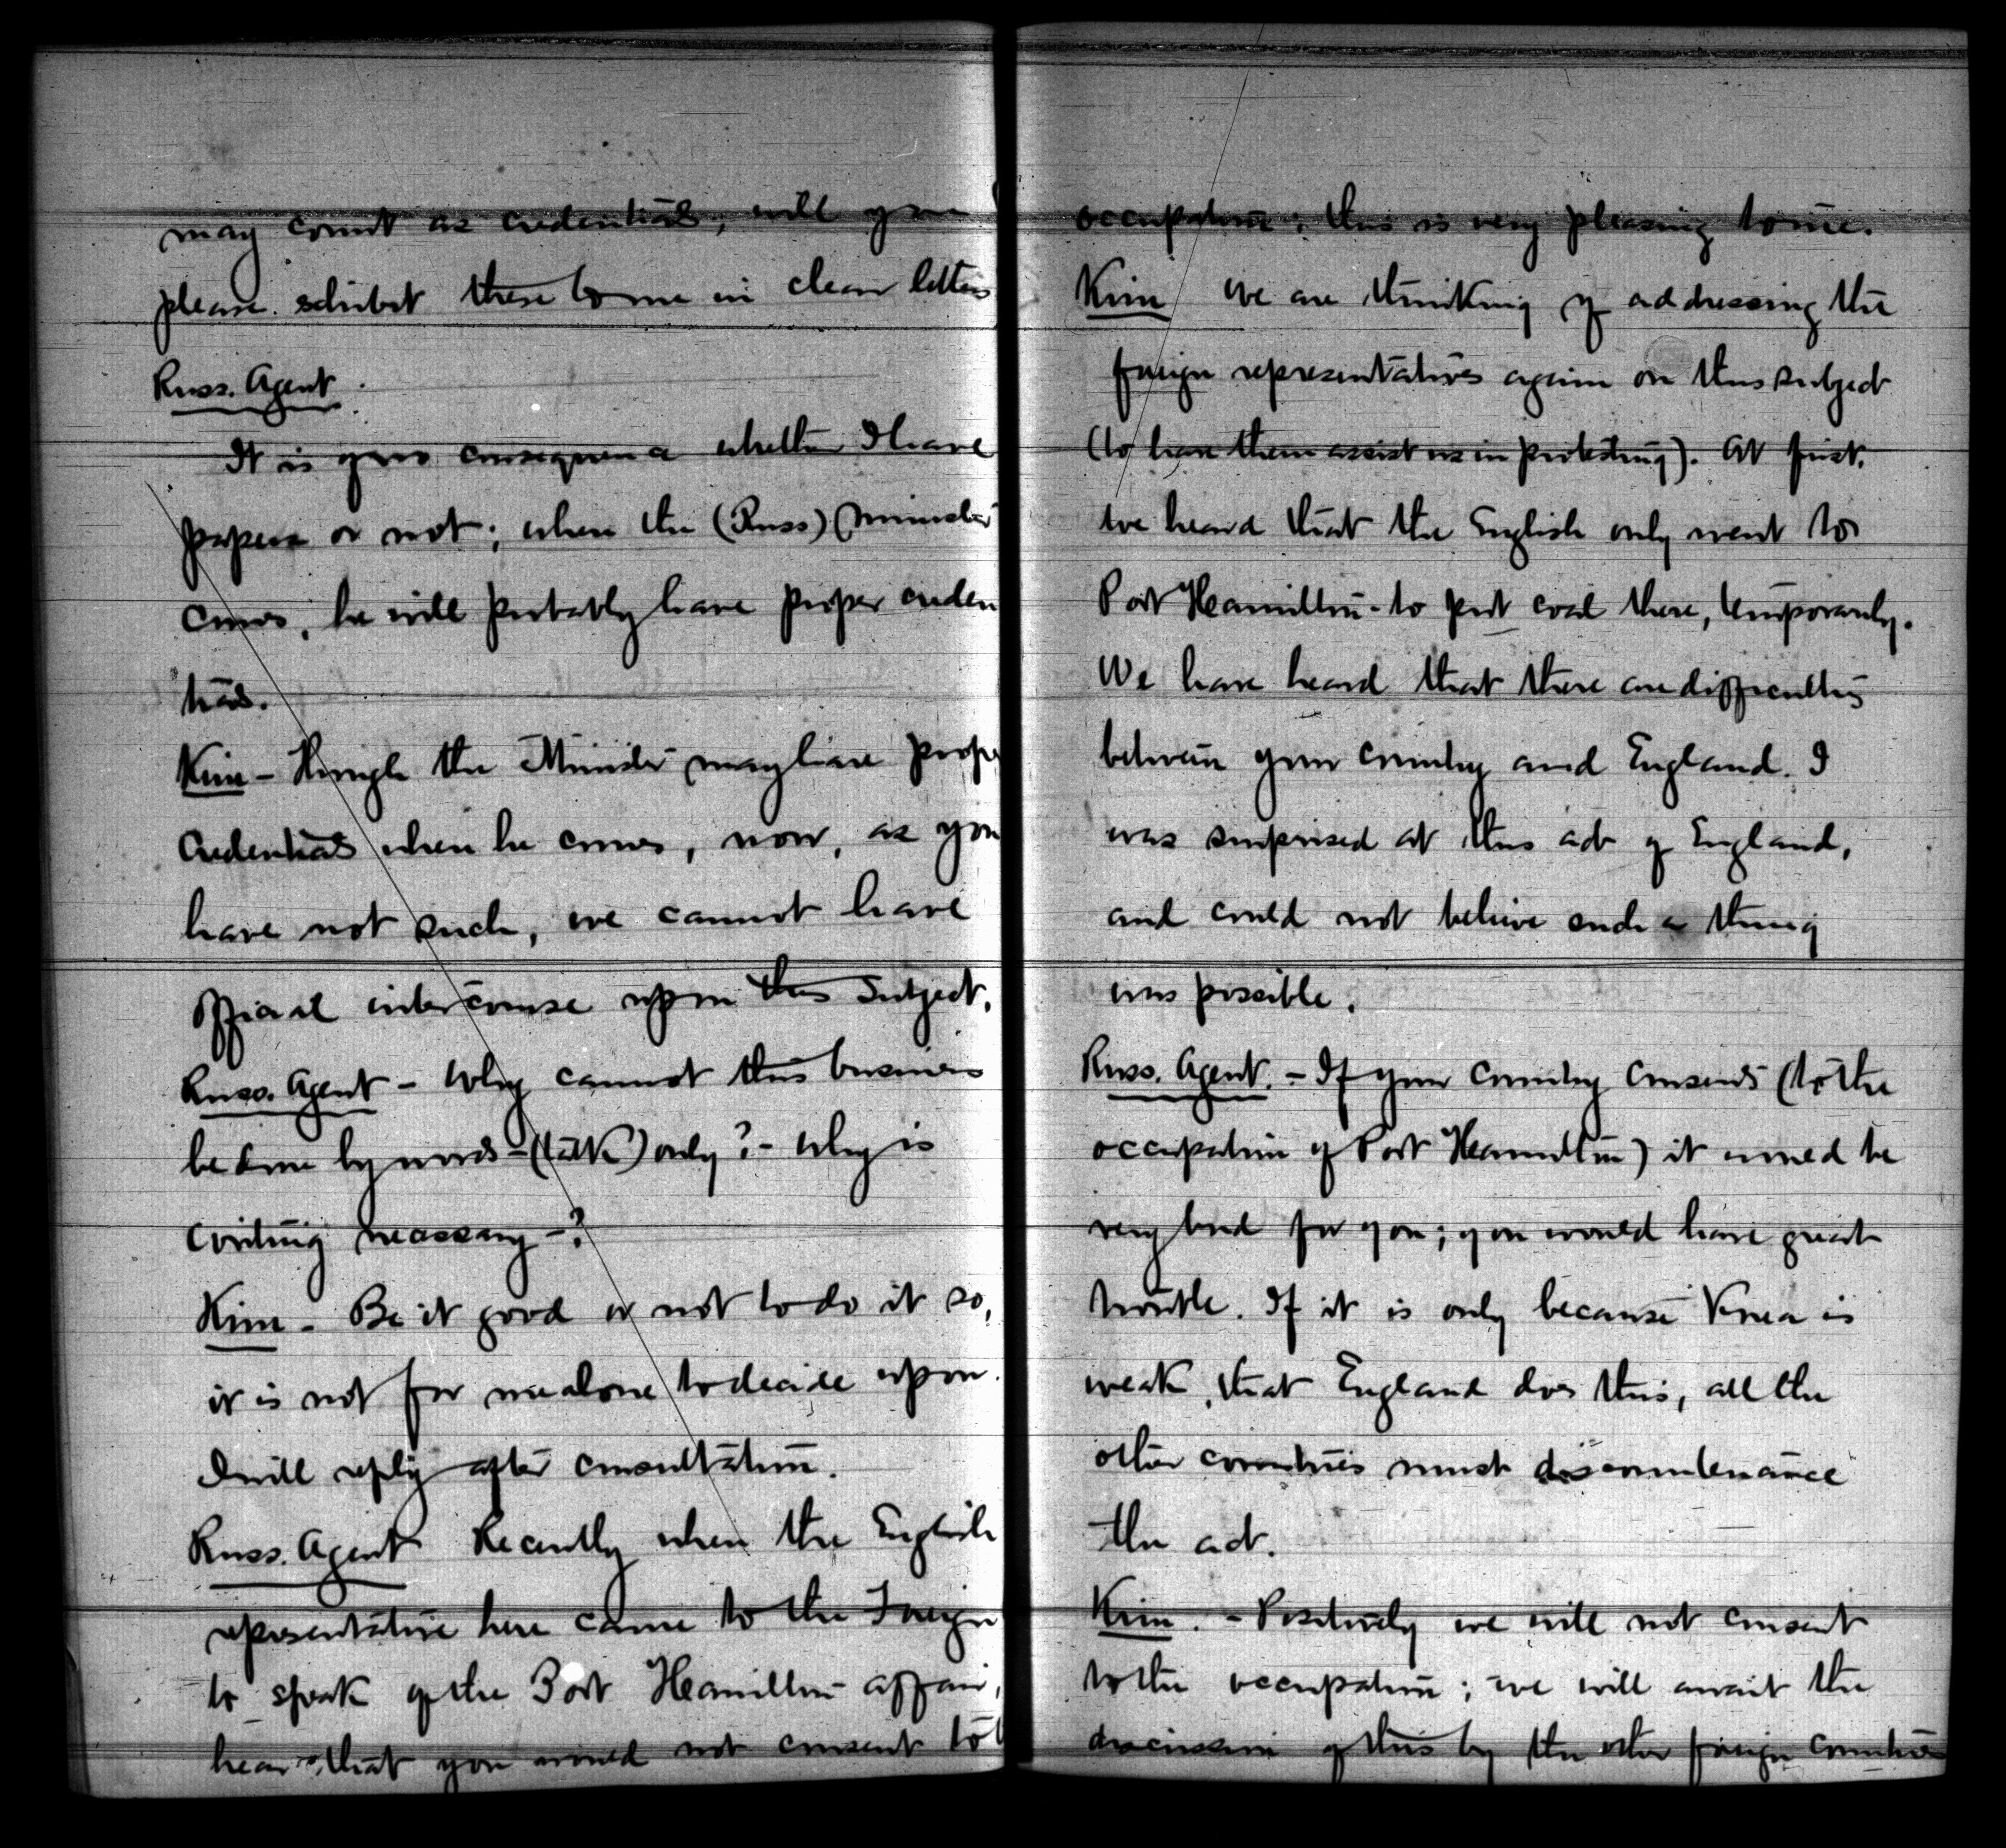 may count as credentials, will you
please exhibit these to me in clear letters
Russ. Agent.
It is of no consequence whether I have
papers or not; when the (Russ) Minister
comes, he will probably have proper creden
tials.
Kim – Though the Minister may have prope
credentials when he comes, now, as you
have not such, we cannot have
official intercourse upon this subject.
Russ. Agent – Why cannot this business
be done by words – (talk) only? – Why is
writing necessary –?
Kim – Be it good or not to do it so,
it is not for me alone to decide upon.
I will reply after consultation.
Russ. Agent Recently when the English
representative here came to the Foreign
to speak of the Port Hamilton affair,
hear that you would not consent to
occupation; this is very pleasing to me.
Kim We are thinking of addressing the
foreign representatives again on this subject
(to have them assist us in protesting). At first,
we heard that the English only went to
Port Hamilton – to put coal there, temporarily.
We have heard that there are difficulties
between your country and England. I
was surprised at this act of England,
and could not believe such a thing
was possible.
Russ. Agent. – If your country consents (to the
occupation of Port Hamilton) it would be
very bad for you; you would have great
trouble. If it is only because Korea is
weak, that England does this, all the
other countries must discountenance
the act.
Kim. – Positively we will not consent
to the occupation; we will await the
discussion of this by the other foreign countries